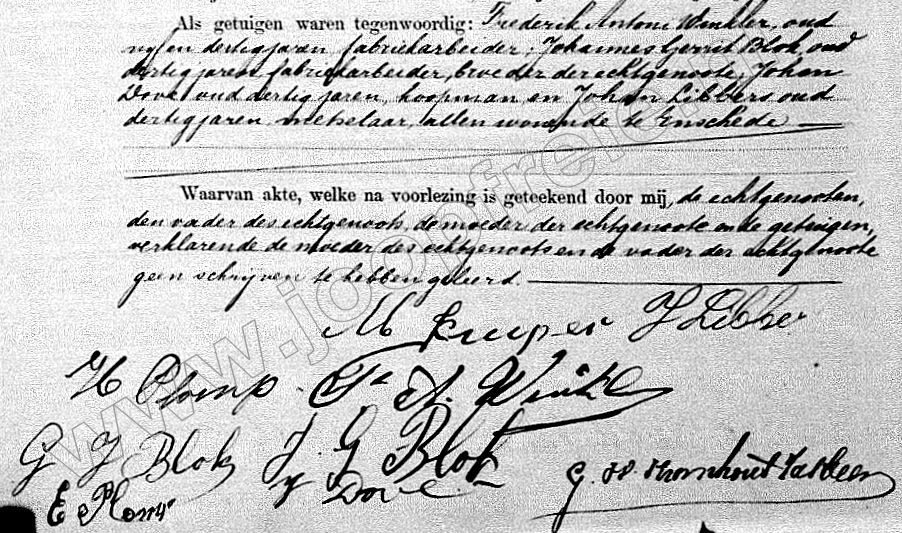 Als getuigen waren tegenwoordig: Frederik Antoni Winkler, oud
vijf en dertig jaren, fabriekarbeider, Johannes Gerrit Blok, oud
dertig jaren, fabriekarbeider, broeder der echtgenoote, Johan
Dove, oud dertig jaren, koopman en Johan Libbers, oud
dertig jaren, metselaar, allen wonende te Enschede
Waarvan akte, welke na voorlezing is geteekend door mij, de echtgenooten,
den vader des echtgenoots, de moeder der echtgenoote en de getuigen,
verklarende de moeder des echtgenoots en de vader der echtgenoote
geen schrijven te hebben geleerd.
M Kuiper J Libber
H Plomp. F A. Winkler
G J Blok J G Blok
J Dove
E Plomp
www.joopfreie.nl